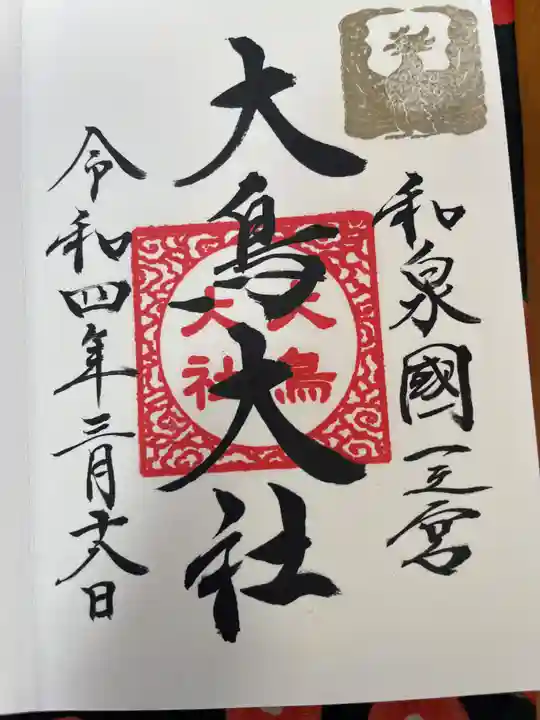 和泉國一之宮
大鳥大社
大鳥
大社
令和四年三月十八日